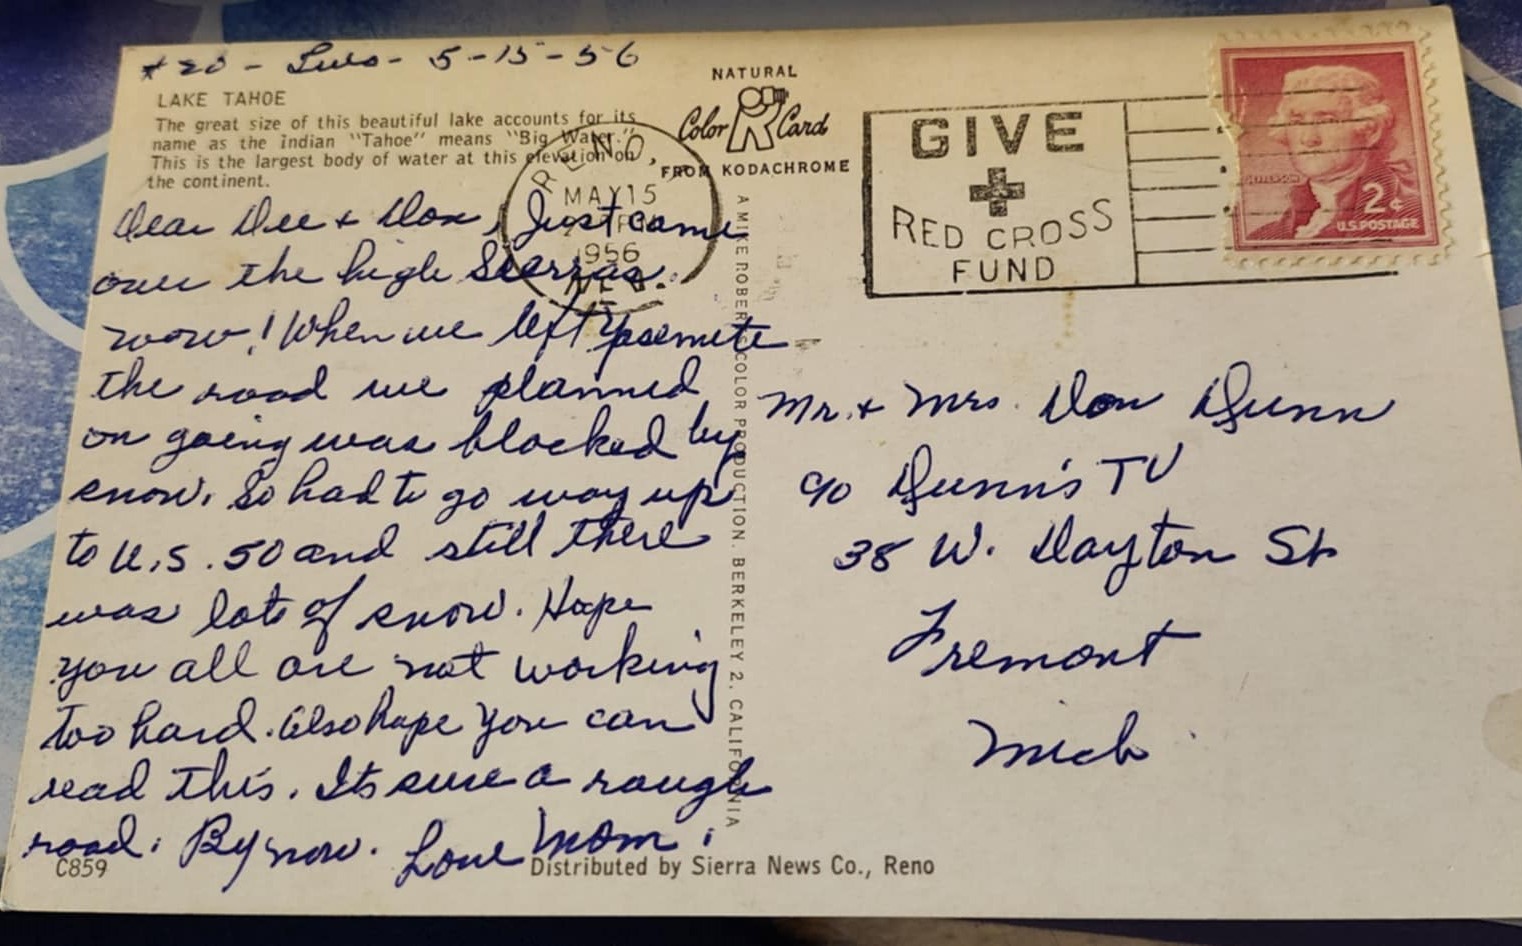 #20 - - 5-15-56
LAKE TAHOE
The great size of this beautiful lake accounts for its
name as the Indian "Tahoe" means "Big Water."
This is the largest body of water at this elevation on
the continent.
Dear Dee + Don, Just came
over the high Sierras.
wow! When we left Yosemite
the road we planned
on going was blocked by
snow. So had to go way up
to U.S. 50 and still there
was lots of snow. Hope
you all are not working
too hard. Also hope you can
read this. Its sure a rough
road. By now. Love Mom.
C859
NATURAL
Color Card
FROM KODACHROME
RENO,
MAY 15
PM
1956
NEV.
A MIKE ROBERTS COLOR PRODUCTION. BERKELEY 2. CALIFORNIA
GIVE
RED CROSS
FUND
JEFFERSON
2¢
U.S. POSTAGE
Mr. + Mrs. Don Dunn
c/o Dunn's TV
38 W. Dayton St
Fremont
Mich
Distributed by Sierra News Co., Reno